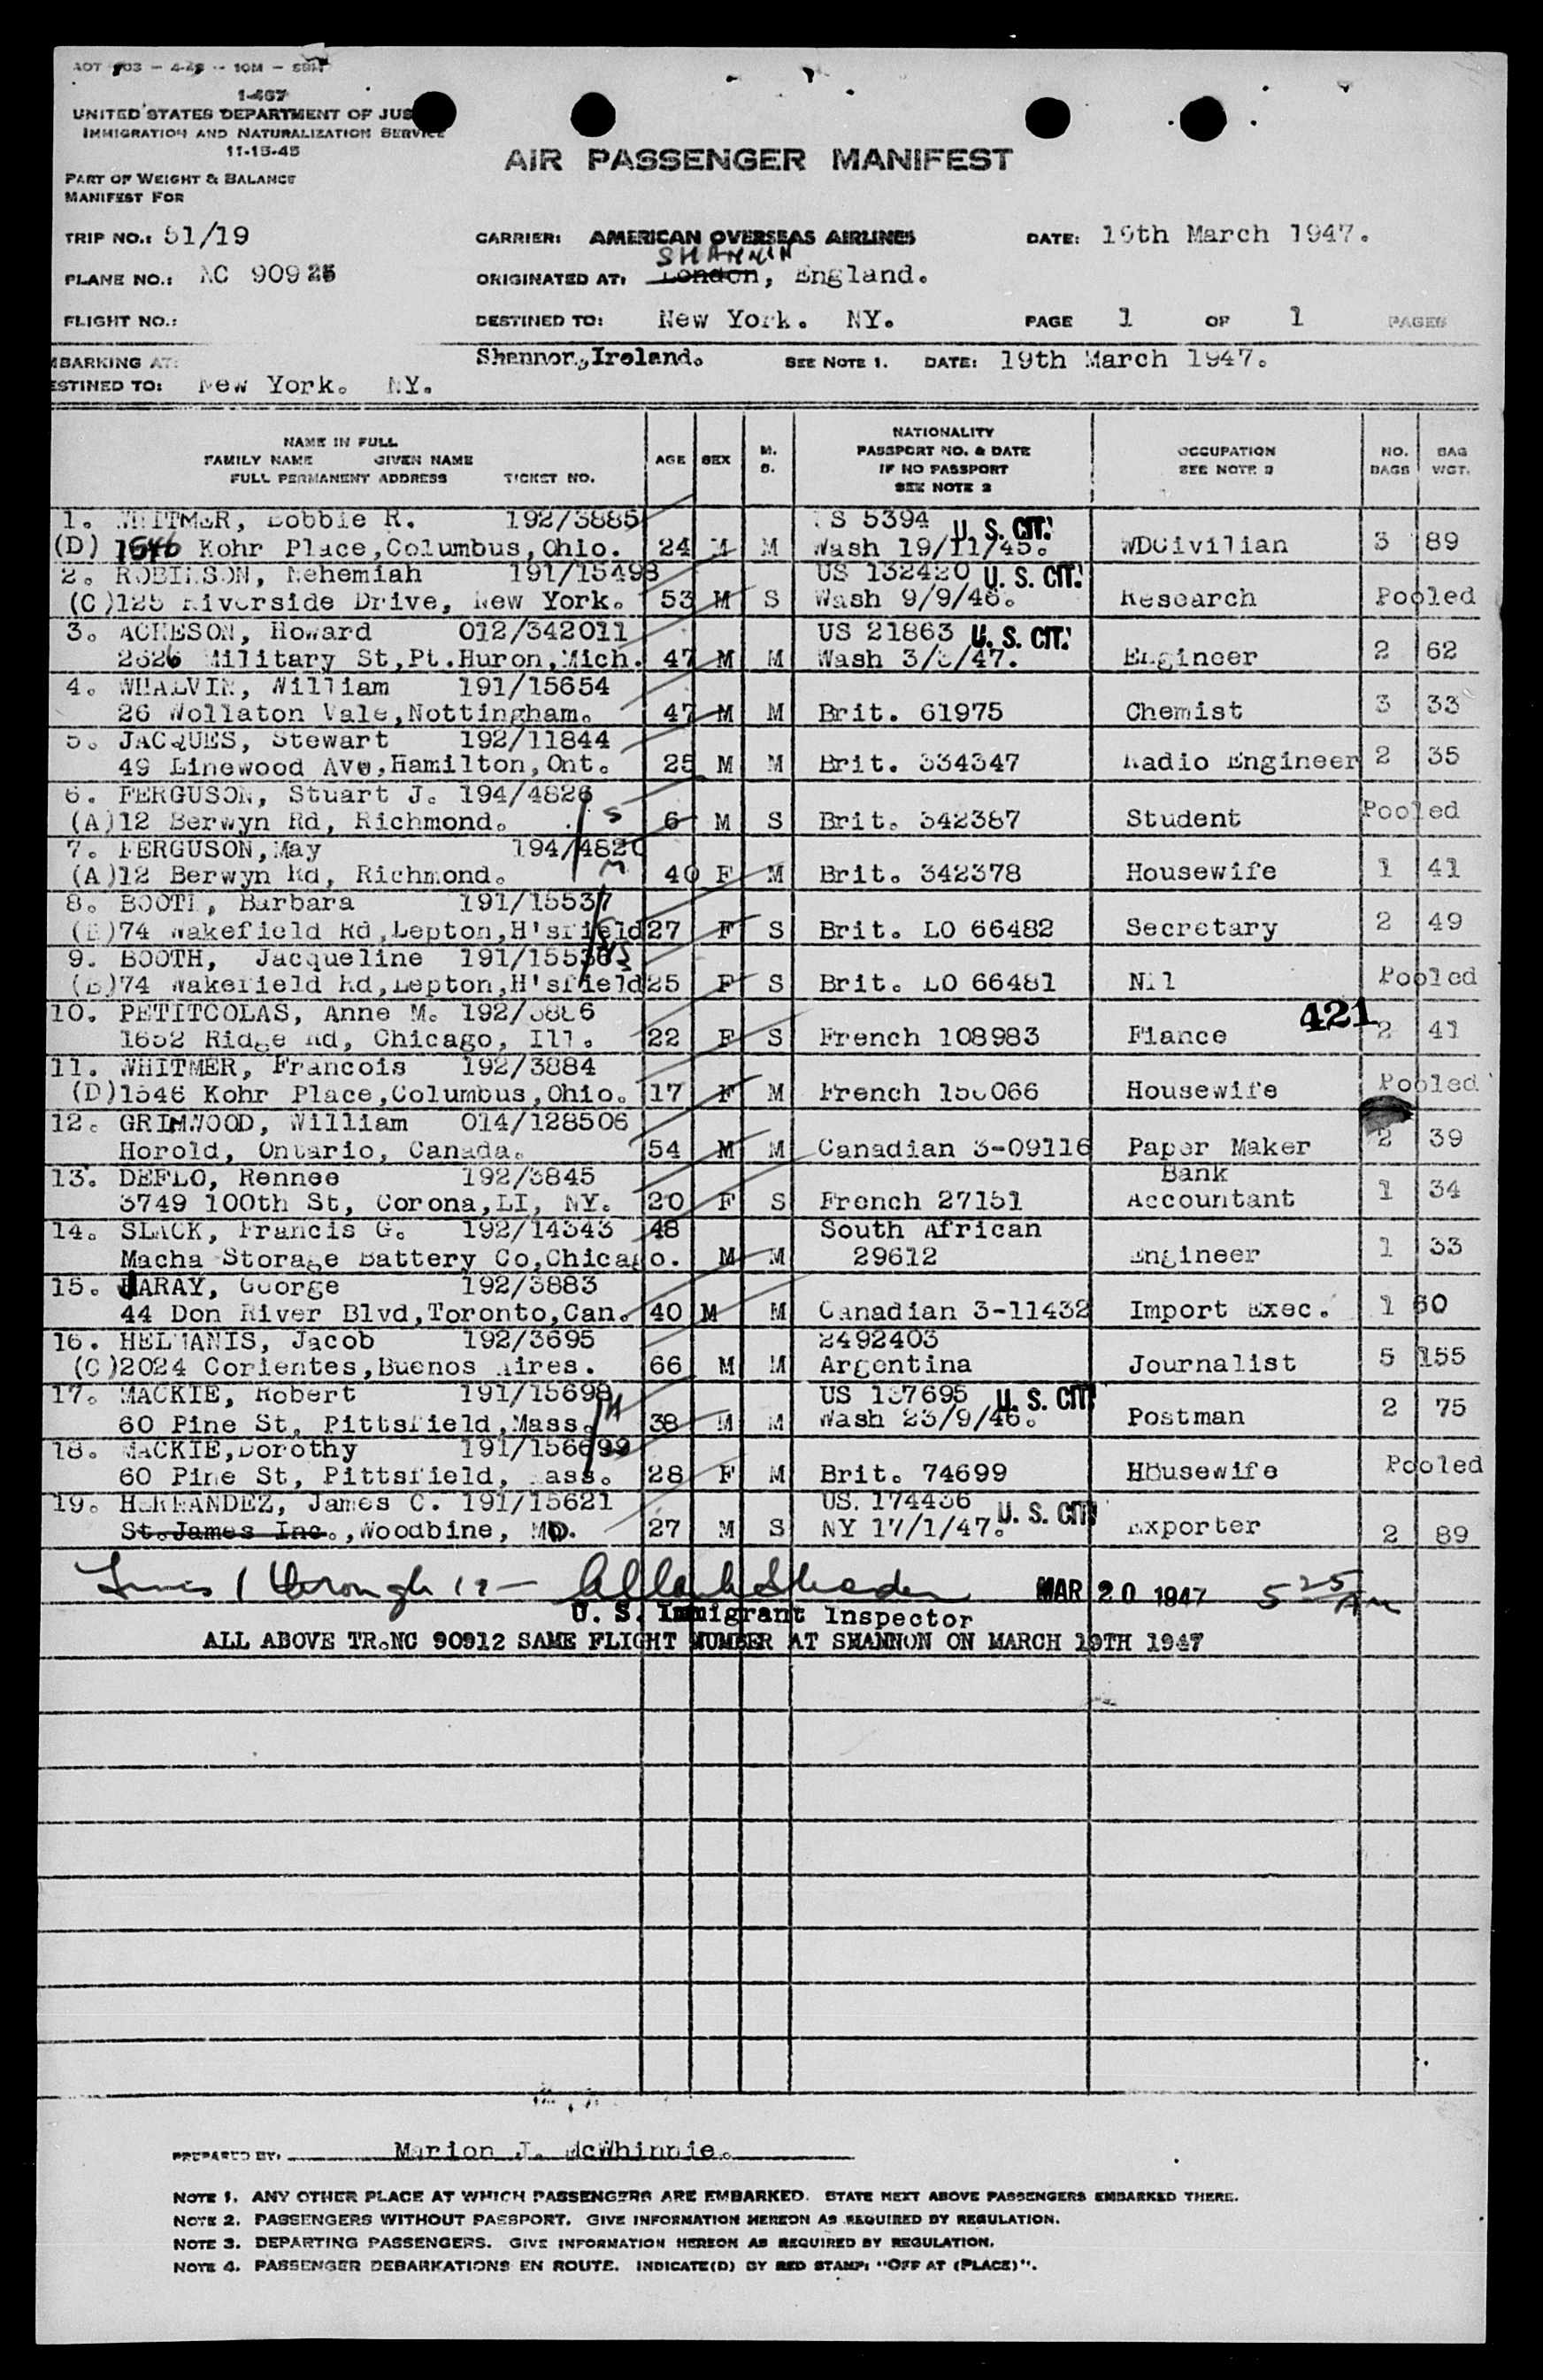 1-467
UNITED STATES DEPARTMENT OF JUS
IMMIGRATION AND NATURALIZATION SERVICE
11-15-45
AIR PASSENGER MANIFEST
PART OF WEIGHT & BALANCE
MANIFEST FOR
TRIP NO.: 51/19 CARRIER: AMERICAN OVERSEAS AIRLINES DATE: 19th March 1947.
SHANNON
PLANE NO.: NC 90925 ORIGINATED AT: London, England.
FLIGHT NO.: DESTINED TO: New York. NY. PAGE 1 OF 1 PAGES
MBARKING AT: Shannon, Ireland. SEE NOTE 1. DATE: 19th March 1947.
ESTINED TO: New York. NY.
NAME IN FULL
FAMILY NAME GIVEN NAME
FULL PERMANENT ADDRESS TICKET NO.
AGE SEX M. S.
NATIONALITY
PASSPORT NO. & DATE
IF NO PASSPORT
SEE NOTE 2
OCCUPATION
SEE NOTE 3
NO. BAGS
BAG WGT.
1. WHITMER, Bobbie R. 192/3885 US 5394 U. S. CIT.
(D) 1546 Kohr Place,Columbus,Ohio. 24 M M Wash 19/11/45. WDCivilian 3 89
2. ROBINSON, Nehemiah 191/15498 US 132420 U. S. CIT.
(C)125 Riverside Drive, New York. 53 M S Wash 9/9/46. Research Pooled
3. ACHESON, Howard 012/342011 US 21863 U. S. CIT.
2626 Military St,Pt.Huron,Mich. 47 M M Wash Engineer 2 62
4. WHALVIN, William 191/15654
26 Wollaton Vale,Nottingham. 47 M M Brit. 61975 Chemist 3 33
5. JACQUES, Stewart 192/11844
49 Linewood Ave,Hamilton,Ont. 25 M M Brit. 334347 Radio Engineer 2 35
6. FERGUSON, Stuart J. 194/4826
(A)12 Berwyn Rd, Richmond. S 6 M S Brit. 342387 Student Pooled
7. FERGUSON,May 194/4820
(A)12 Berwyn Rd, Richmond. M 40 F M Brit. 342378 Housewife 1 41
8. BOOTH, Barbara 191/15537
(B)74 Wakefield Rd,Lepton,H'sfield 27 F S Brit. LO 66482 Secretary 2 49
9. BOOTH, Jacqueline 191/15536
(B)74 Wakefield Rd,Lepton,H'sfield 25 F S Brit. LO 66481 Nil Pooled
10. PETITCOLAS, Anne M. 192/3886 421
1652 Ridge Rd, Chicago, Ill. 22 F S French 108983 Fiance 2 41
11. WHITMER, Francois 192/3884
(D)1546 Kohr Place,Columbus,Ohio. 17 F M French Housewife Pooled
12. GRIMWOOD, William 014/128506
Horold, Ontario, Canada. 54 M M Canadian 3-09116 Paper Maker 2 39
13. DEFLO, Rennee 192/3845 Bank
3749 100th St, Corona,LI, NY. 20 F S French 27151 Accountant 1 34
14. SLACK, Francis G. 192/14343 48 South African
Macha Storage Battery Co,Chicago. M M 29612 Engineer 1 33
15. JARAY, George 192/3883
44 Don River Blvd,Toronto,Can. 40 M M Canadian 3-11432 Import Exec. 1 60
16. HELMANIS, Jacob 192/3695 2492403
(C)2024 Corientes,Buenos Aires. 66 M M Argentina Journalist 5 155
17. MACKIE, Robert 191/15698 US 137695 U. S. CIT
60 Pine St, Pittsfield,Mass. 38 M M Wash 23/9/46. Postman 2 75
18. MACKIE,Dorothy 191/156699
60 Pine St, Pittsfield, Mass. 28 F M Brit. 74699 Housewife Pooled
19. HERNANDEZ, James C. 191/15621 US. 174436 U. S. CIT
St.James Inc.,Woodbine, MD. 27 M S NY 17/1/47. Exporter 2 89
Lines 1 through 19 — MAR 20 1947 5 25 AM
U. S. Immigrant Inspector
ALL ABOVE TR.NC 90912 SAME FLIGHT NUMBER AT SHANNON ON MARCH 19TH 1947
PREPARED BY: Marion J. McWhinnie.
NOTE 1. ANY OTHER PLACE AT WHICH PASSENGERS ARE EMBARKED. STATE NEXT ABOVE PASSENGERS EMBARKED THERE.
NOTE 2. PASSENGERS WITHOUT PASSPORT. GIVE INFORMATION HEREON AS REQUIRED BY REGULATION.
NOTE 3. DEPARTING PASSENGERS. GIVE INFORMATION HEREON AS REQUIRED BY REGULATION.
NOTE 4. PASSENGER DEBARKATIONS EN ROUTE. INDICATE(D) BY RED STAMP: "OFF AT (PLACE)".